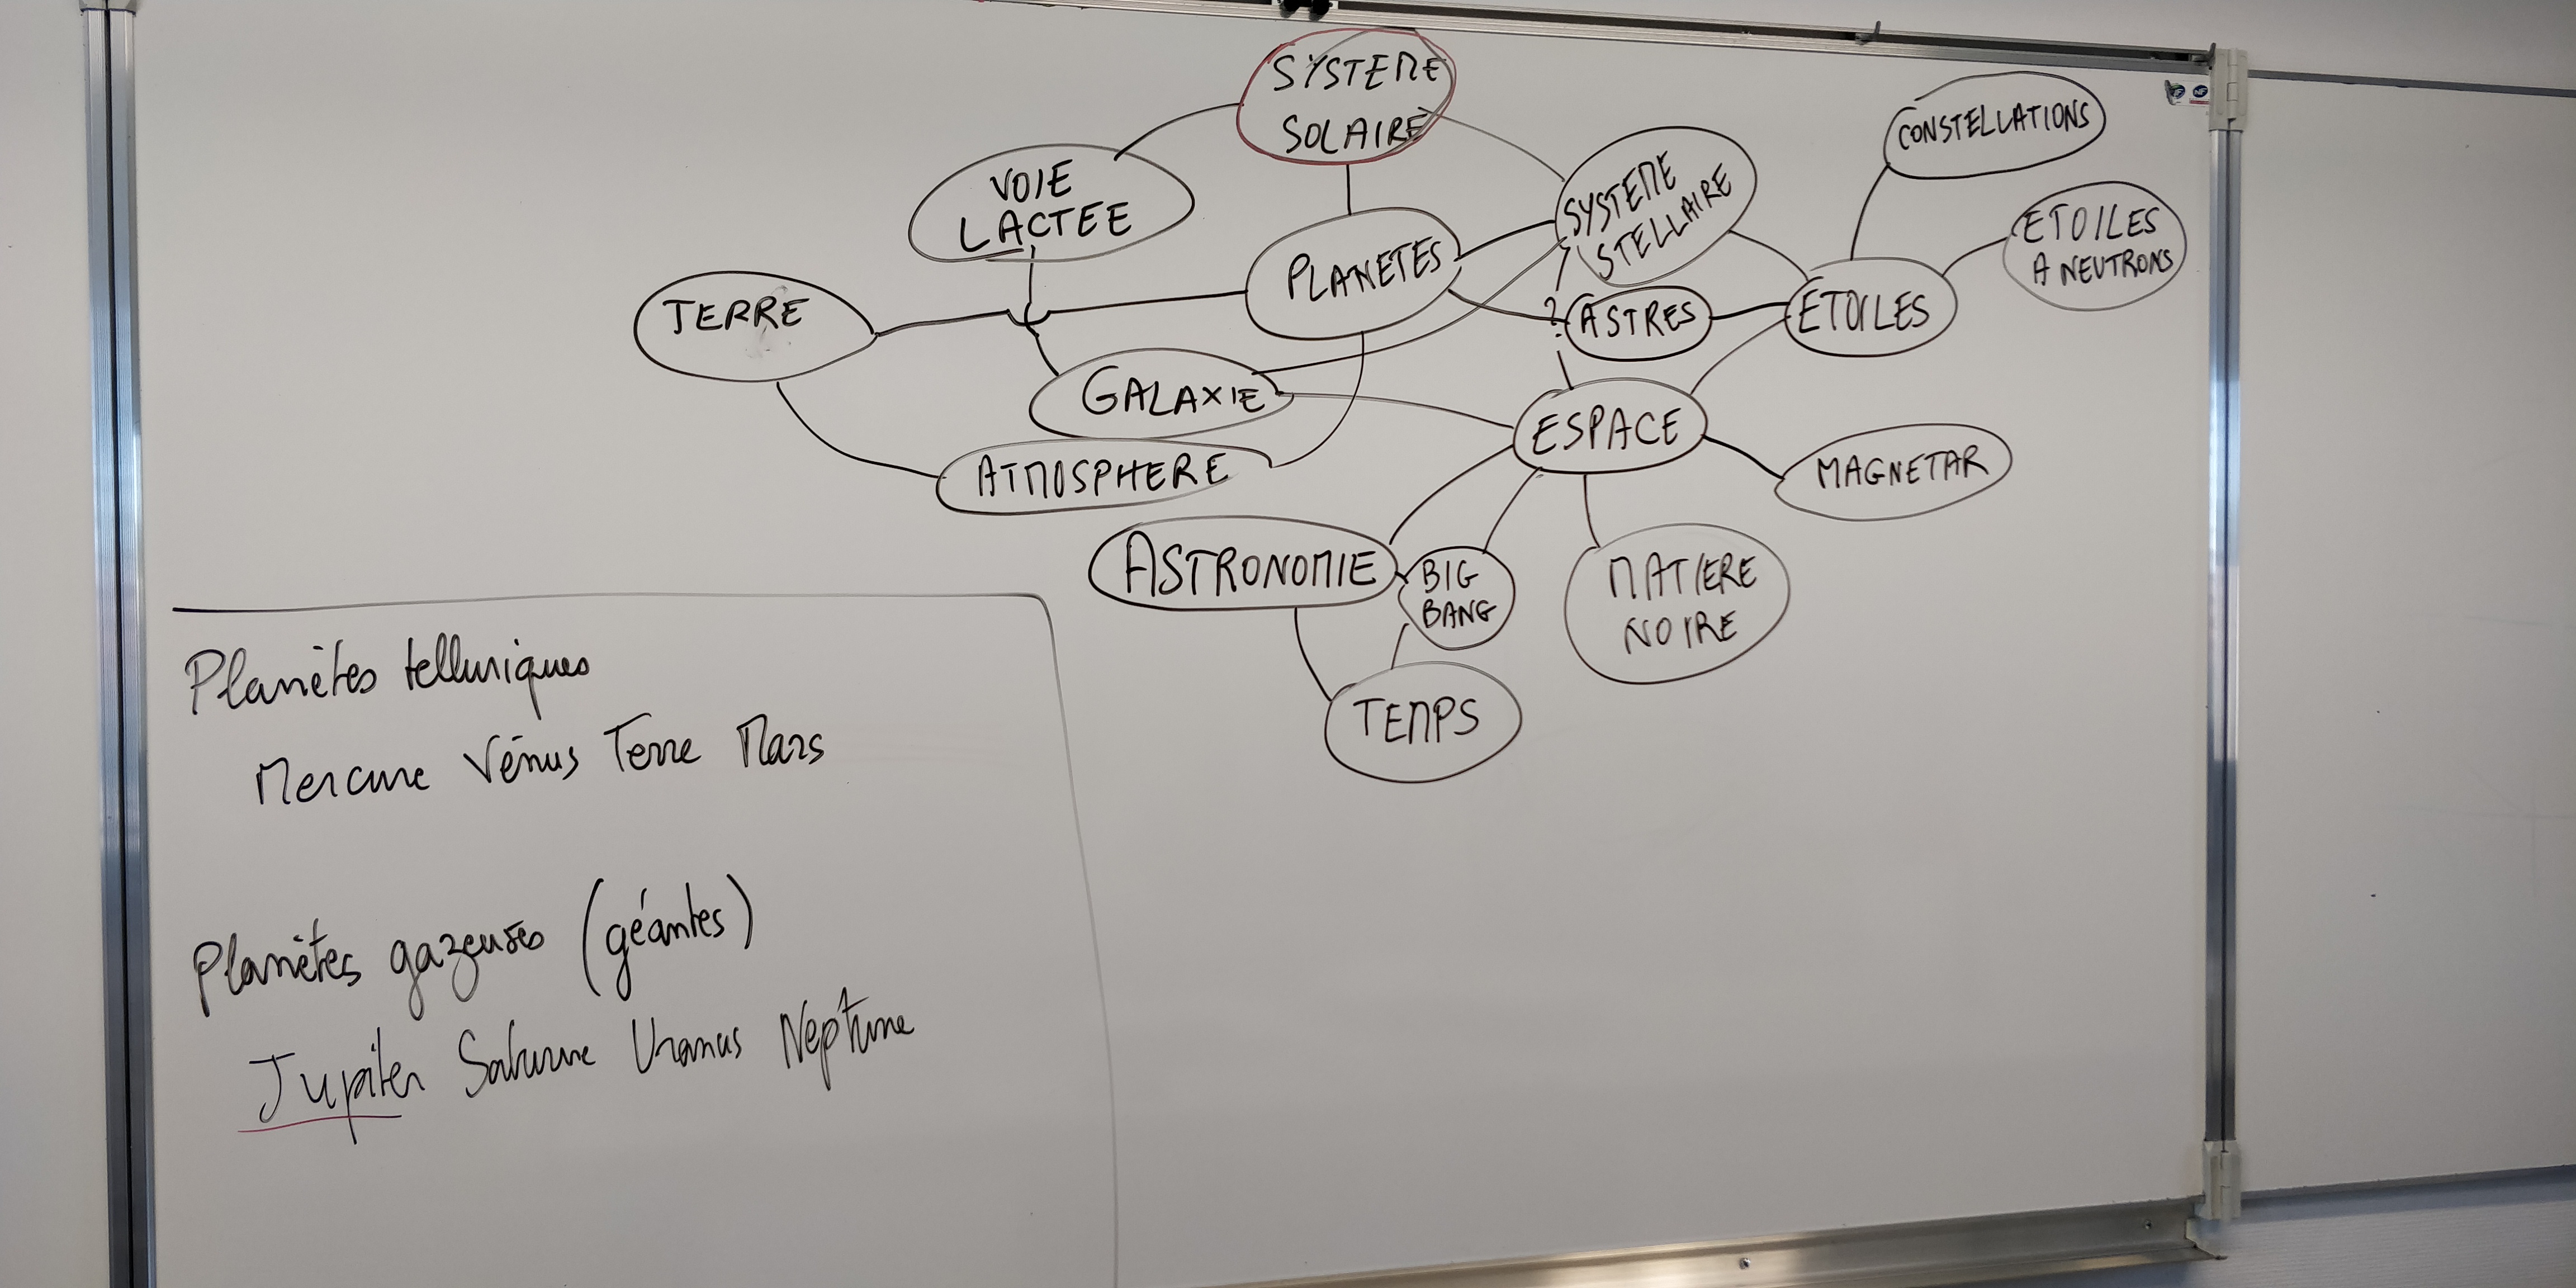 SYSTEME
SOLAIRE
CONSTELLATIONS
VOIE
LACTEE
SYSTEME
STELLAIRE
ETOILES
A NEUTRONS
PLANETES
TERRE
?
ASTRES
ETOILES
GALAXIE
ESPACE
ATMOSPHERE
MAGNETAR
ASTRONOMIE
BIG
BANG
MATIERE
NOIRE
TEMPS
Planètes telluriques
Mercure Vénus Terre Mars
Planètes gazeuses (géantes)
Jupiter Saturne Uranus Neptune
NF